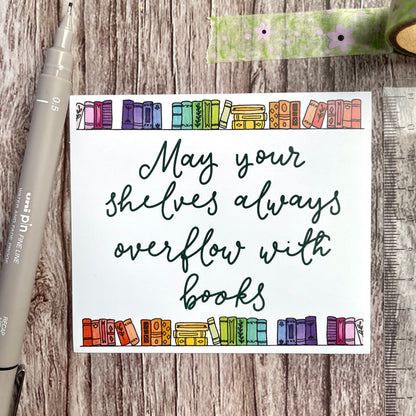 May your
shelves always
overflow with
books
0.5
uni pin FINE LINE